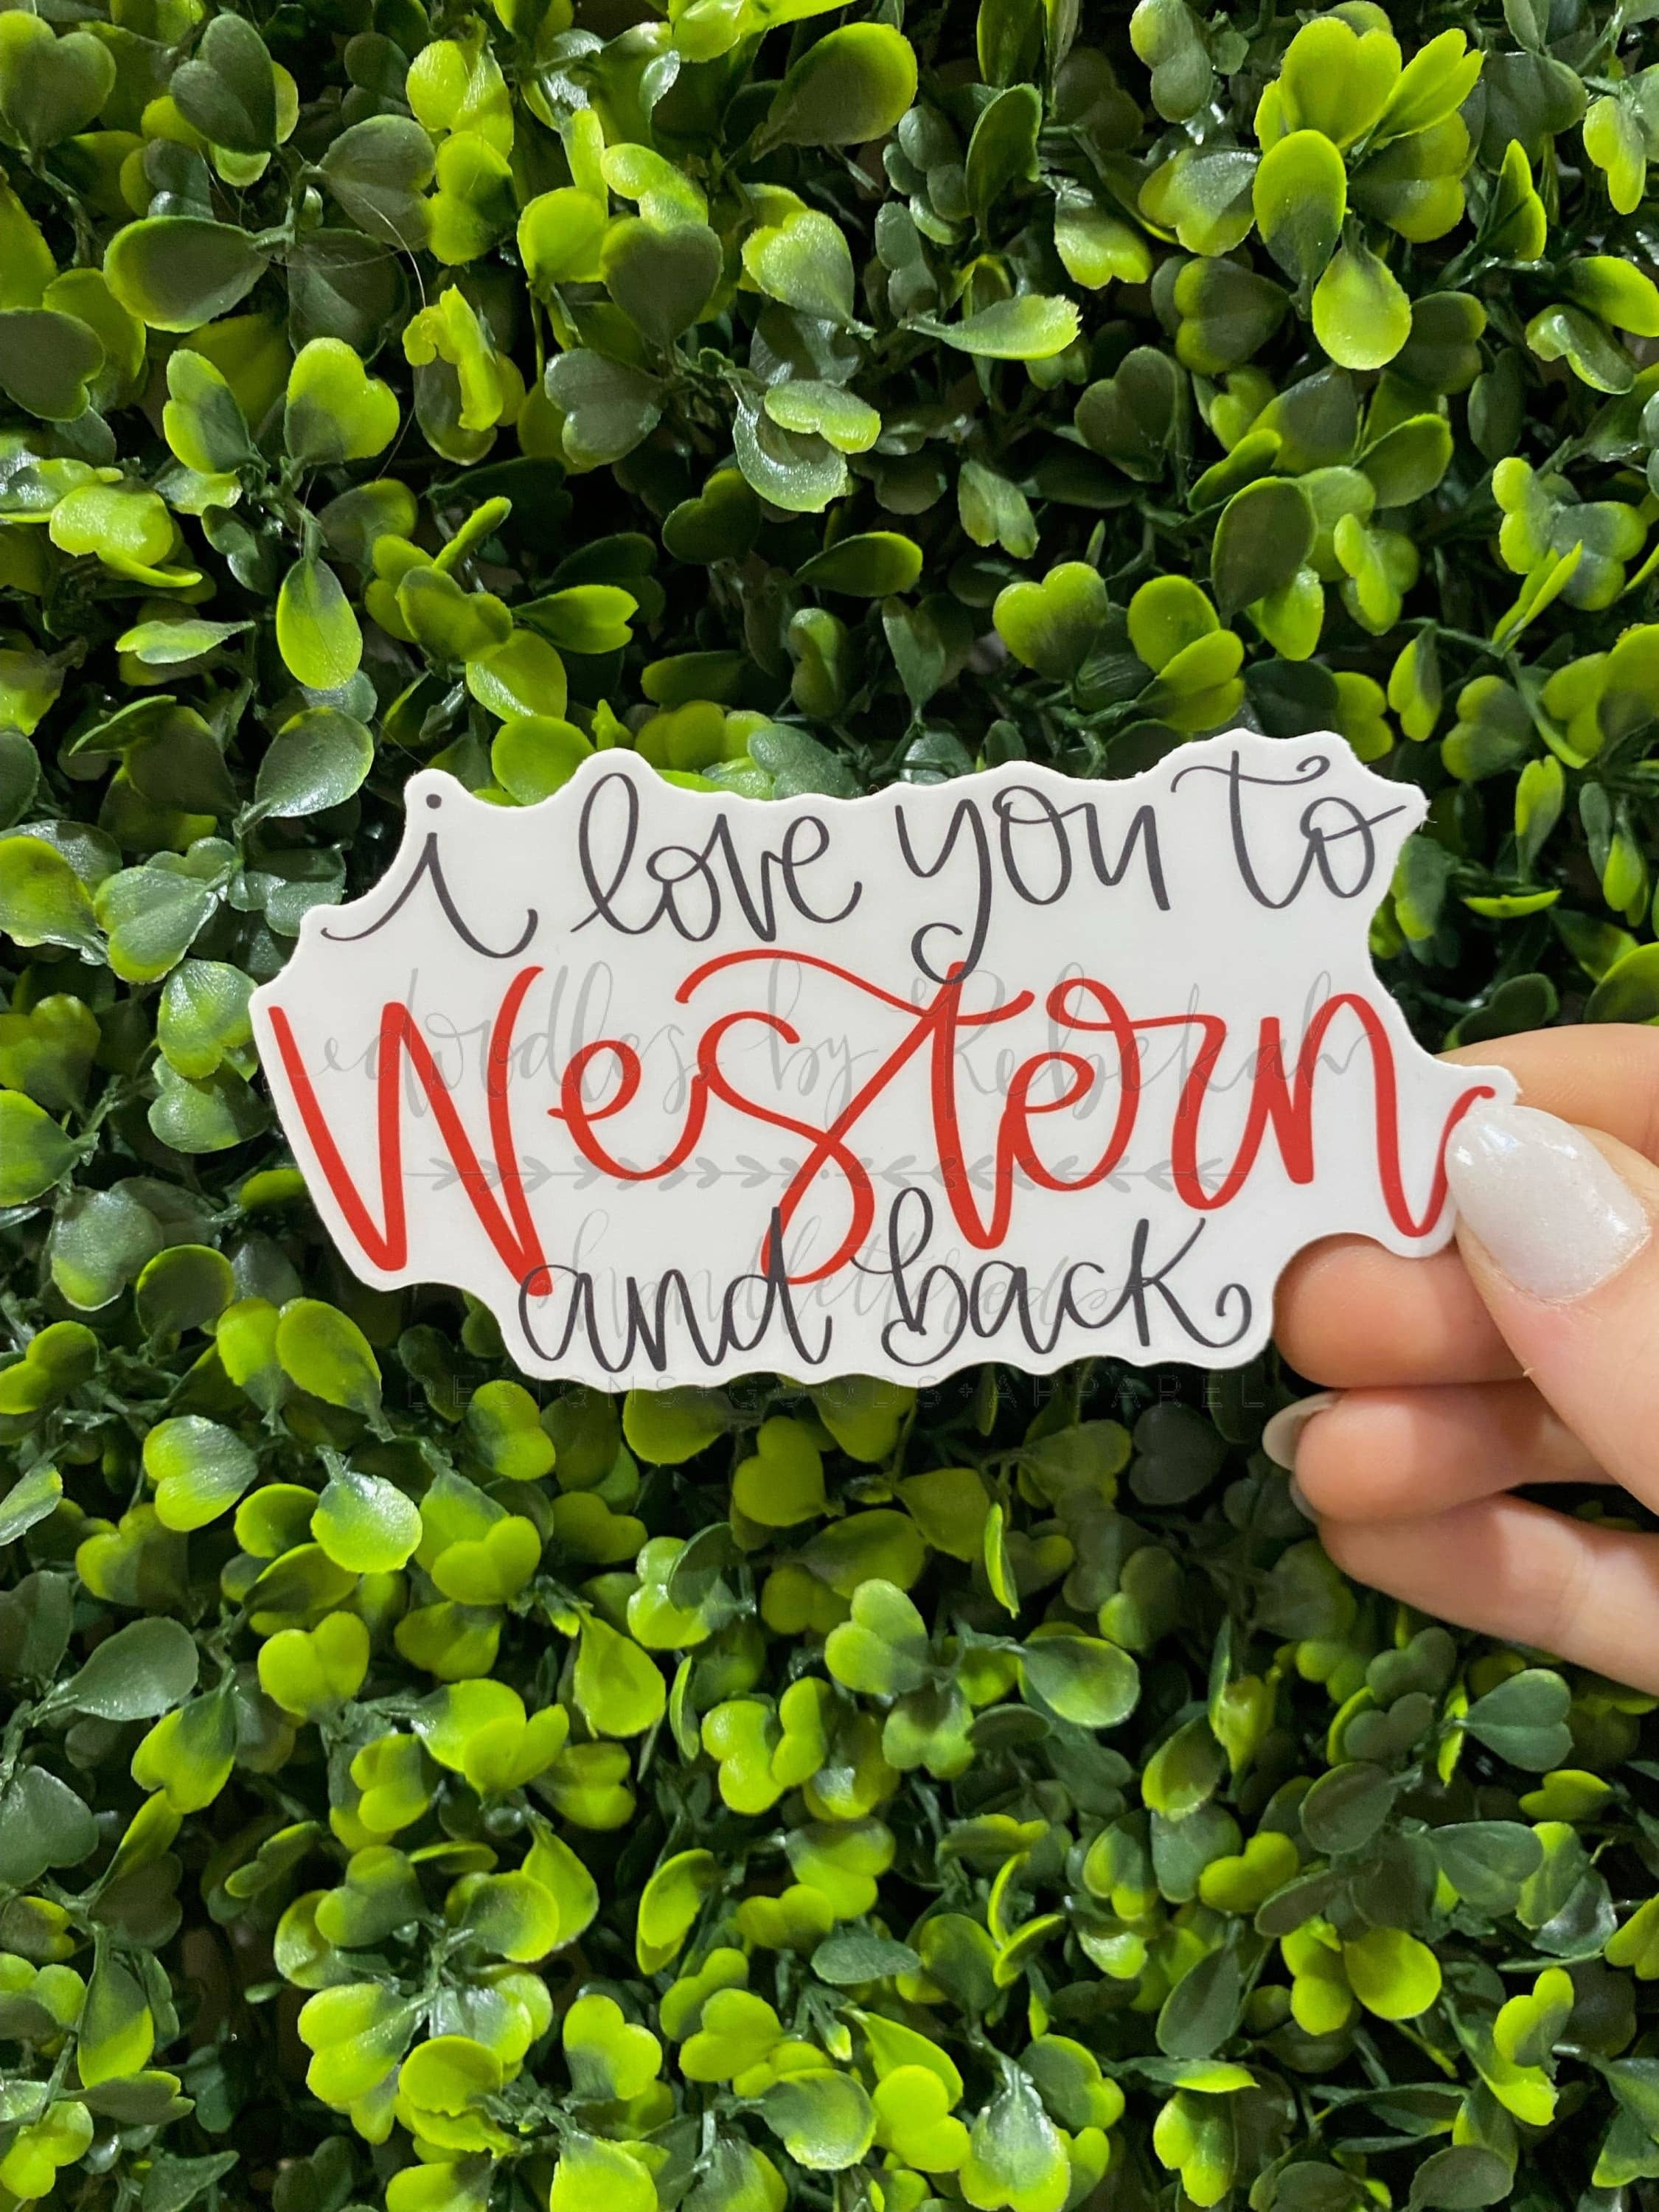 i love you to
Western
doodles by Rebekah
and back
handlettered
DESIGNS+GOODS+APPAREL